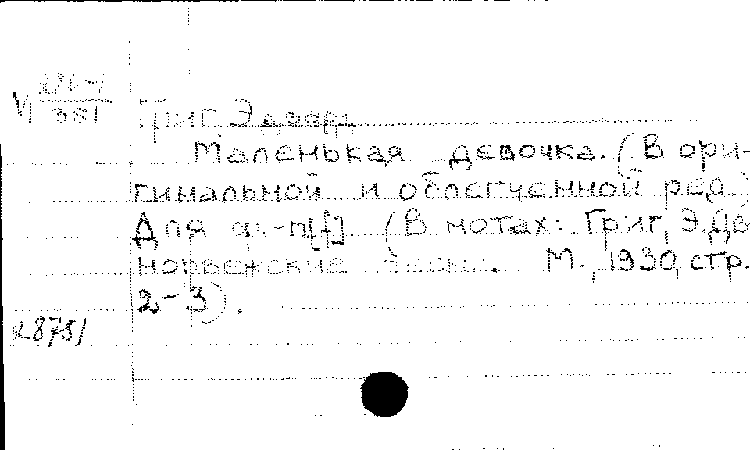 Григ Эдвард
Маленькая девочка. (В ори-
гинальной и облегченной ред.)
Для ф.-п[f]. (В нотах: Григ, Э. Дв
норвежские М., 1930, стр.
2-3).
28751